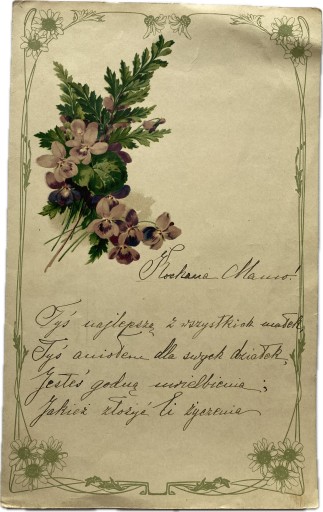 Kochana Mamo!
Tyś najlepszą z wszystkich matek,
Tyś aniołem dla swych dziatek,
Jesteś godną uwielbienia;
Jakież złożyć Ci życzenia